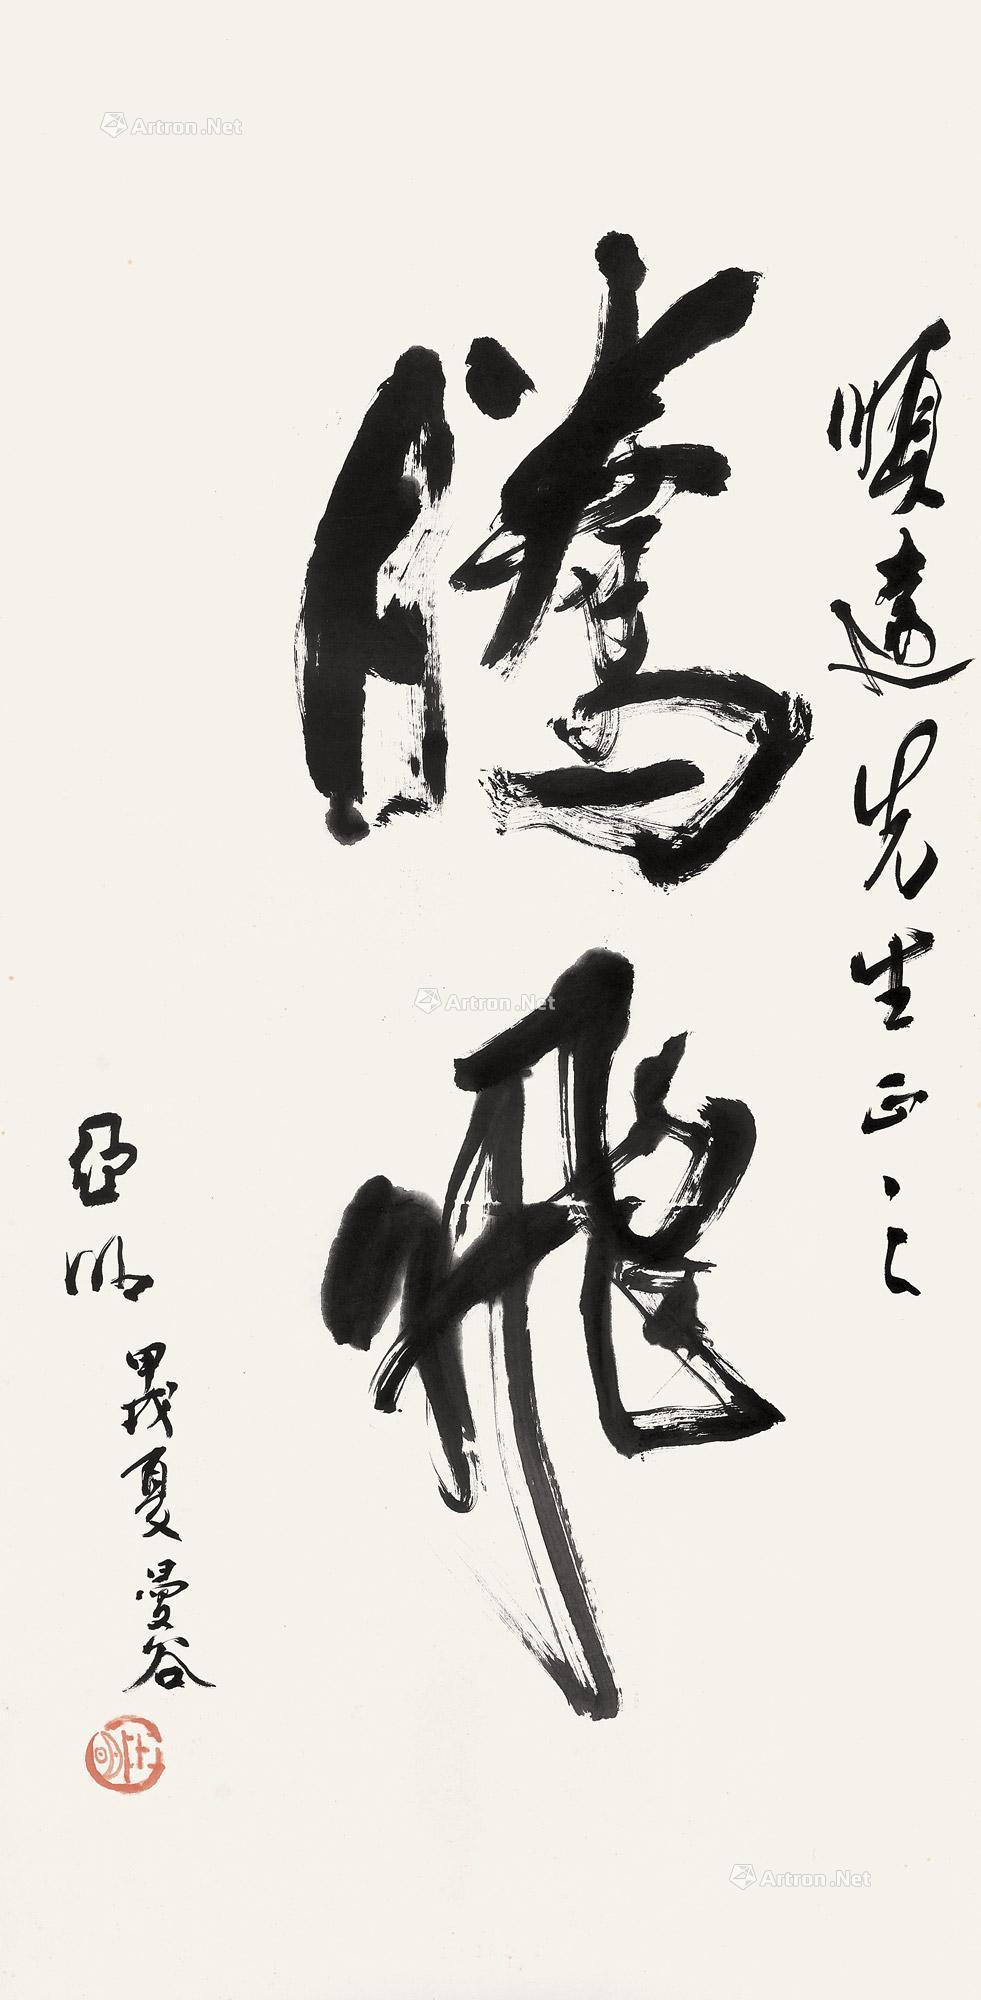 順遠先生正之
騰飛
亞明
甲戌夏曼谷
Artron.Net
Artron.Net
Artron.Net